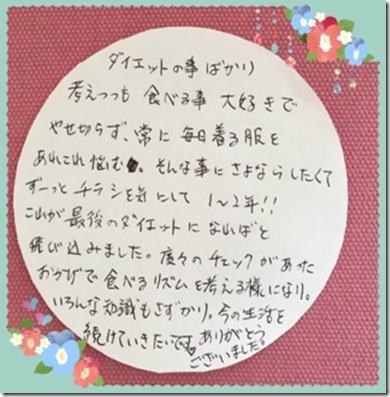 ダイエットの事ばかり
考えつつも 食べる事 大好きで
やせ切らず、常に 毎日着る服を
あれこれ悩む。そんな事にさよならしたくて
ずーっとチラシを気にして 1〜2年!!
これが最後のダイエットになればと
飛び込みました。度々のチェックがあった
おかげで食べるリズムを考える様になり。
いろんな知識もさずかり。今の生活を
続けていきたいです。ありがとう
ございました。